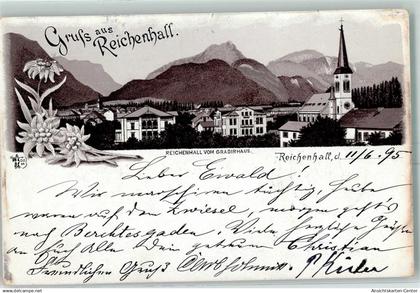 Gruss aus Reichenhall.
REICHENHALL VOM GRADIRHAUS.
Reichenhall, d. 11/6. 95
Lieber Ewald!
Wir marschieren tüchtig, heute
waren auf den Zwiesel, morgen geht's
nach Berchtesgaden. Viele herzliche Grüße
an Euch Alle Dein getreuer Christian
Freundlichen Gruß
Ansichtskarten-Center